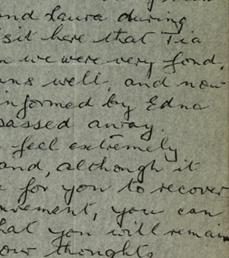 and Laura during
isit here that Tia
n we were very fond,
ns well, and now
informed by Edna
passed away.
feel extremely
and, although it
for you to recover
urement, you can
hat you will remain
our thoughts